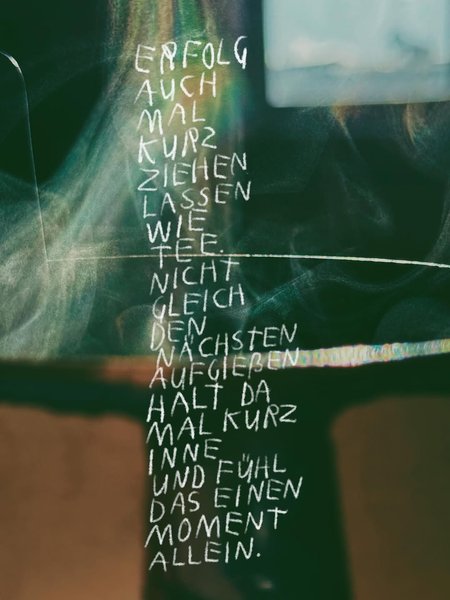 ERFOLG
AUCH
MAL
KURZ
ZIEHEN
LASSEN
WIE
TEE.
NICHT
GLEICH
DEN
NÄCHSTEN
AUFGIEßEN
HALT DA
MAL KURZ
INNE
UND FÜHL
DAS EINEN
MOMENT
ALLEIN.